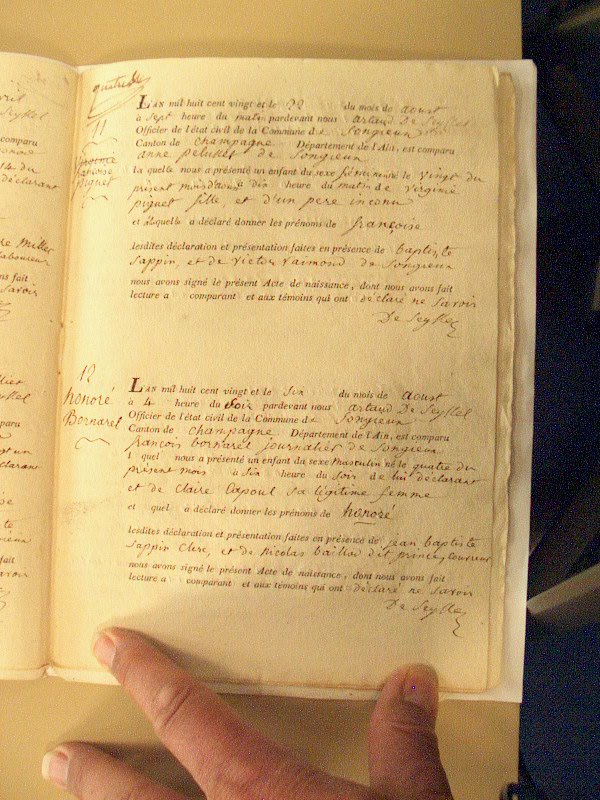 11
françoise
piquet
LAN mil huit cent vingt et le 22 du mois de aoust
à sept heure du matin pardevant nous artaud De Seyssel
Officier de l'état civil de la Commune de Songieux
Canton de champagne Département de l'Ain, est comparu
anne de Songieux
laquelle nous a présenté un enfant du sexe féminin né le vingt du
présent mois à dix heure du matin de virginie
piquet fille, et d'un pere inconu
et laquelle a déclaré donner les prénoms de françoise
lesdites déclaration et présentation faites en présence de baptiste
Sappin, et de victor raimond de Songieux
nous avons signé le présent Acte de naissance, dont nous avons fait
lecture a comparant et aux témoins qui ont déclaré ne savoir
De Seyssel
12
honoré
Bornarel
LAN mil huit cent vingt et le six du mois de aoust
à 4 heure du Soir pardevant nous artaud De Seyssel
Officier de l'état civil de la Commune de Songieux
Canton de champagne Département de l'Ain, est comparu
françois bornarel journalier de Songieux
l quel nous a présenté un enfant du sexe masculin né le quatre du
présent mois à six heure du soir de lui déclarant
et de Claire Capoul sa légitime femme
et quel a déclaré donner les prénoms de honoré
lesdites déclaration et présentation faites en présence de jean baptiste
Sappin Clerc, et de nicolas dit
nous avons signé le présent Acte de naissance, dont nous avons fait
lecture a comparant et aux témoins qui ont déclaré ne savoir
De Seyssel